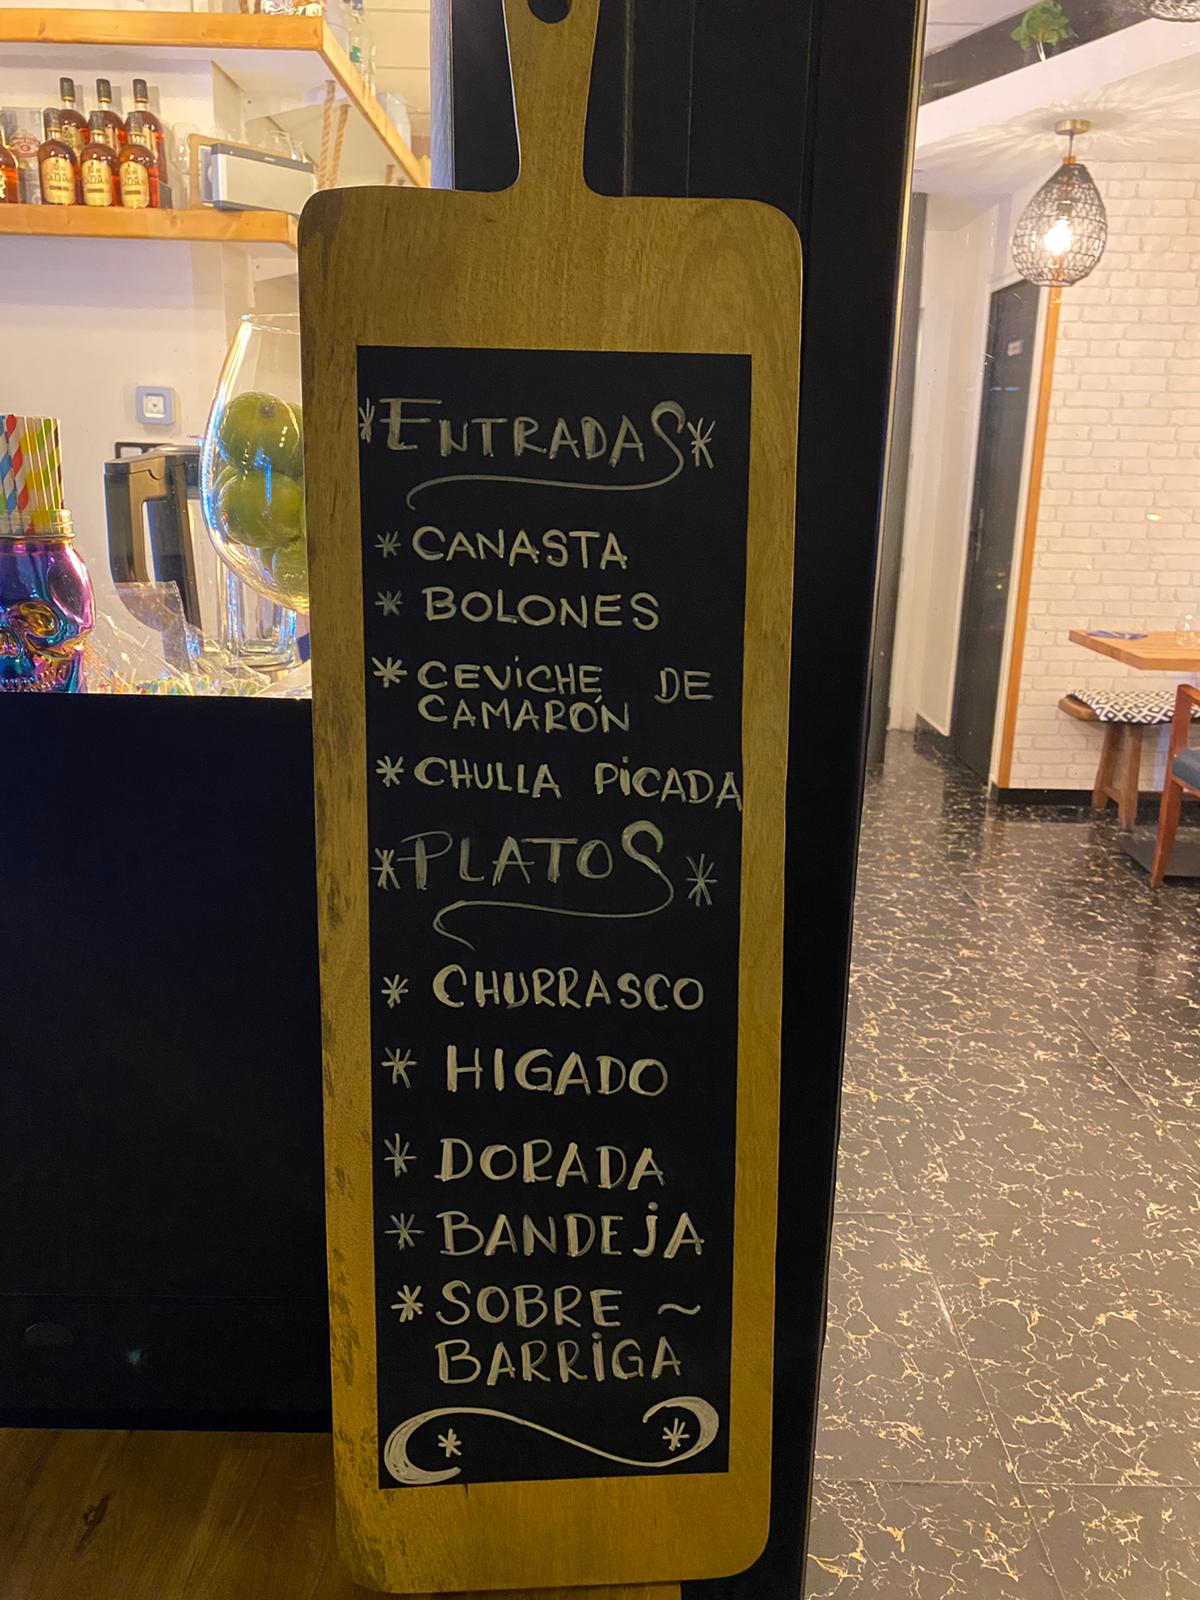 *ENTRADAS*
* CANASTA
* BOLONES
* CEViCHE DE
CAMARÓN
* CHULLA PiCADA
*PLATOS*
* CHURRASCO
* HIGADO
* DORADA
* BANDEjA
* SOBRE ~
BARRiGA